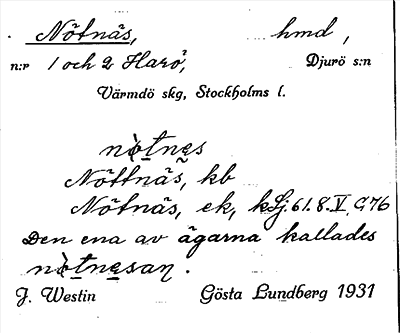 Nötnäs, hmd,
n:r 1 och 2 Harö, Djurö s:n
Värmdö skg, Stockholms l.
nòtnęs
Nöttnäs, kb
Nötnäs, ek, kLj. 61.8.V. G76
Den ena av ägarna kallades
nòtnęsaŋ.
J. Westin Gösta Lundberg 1931